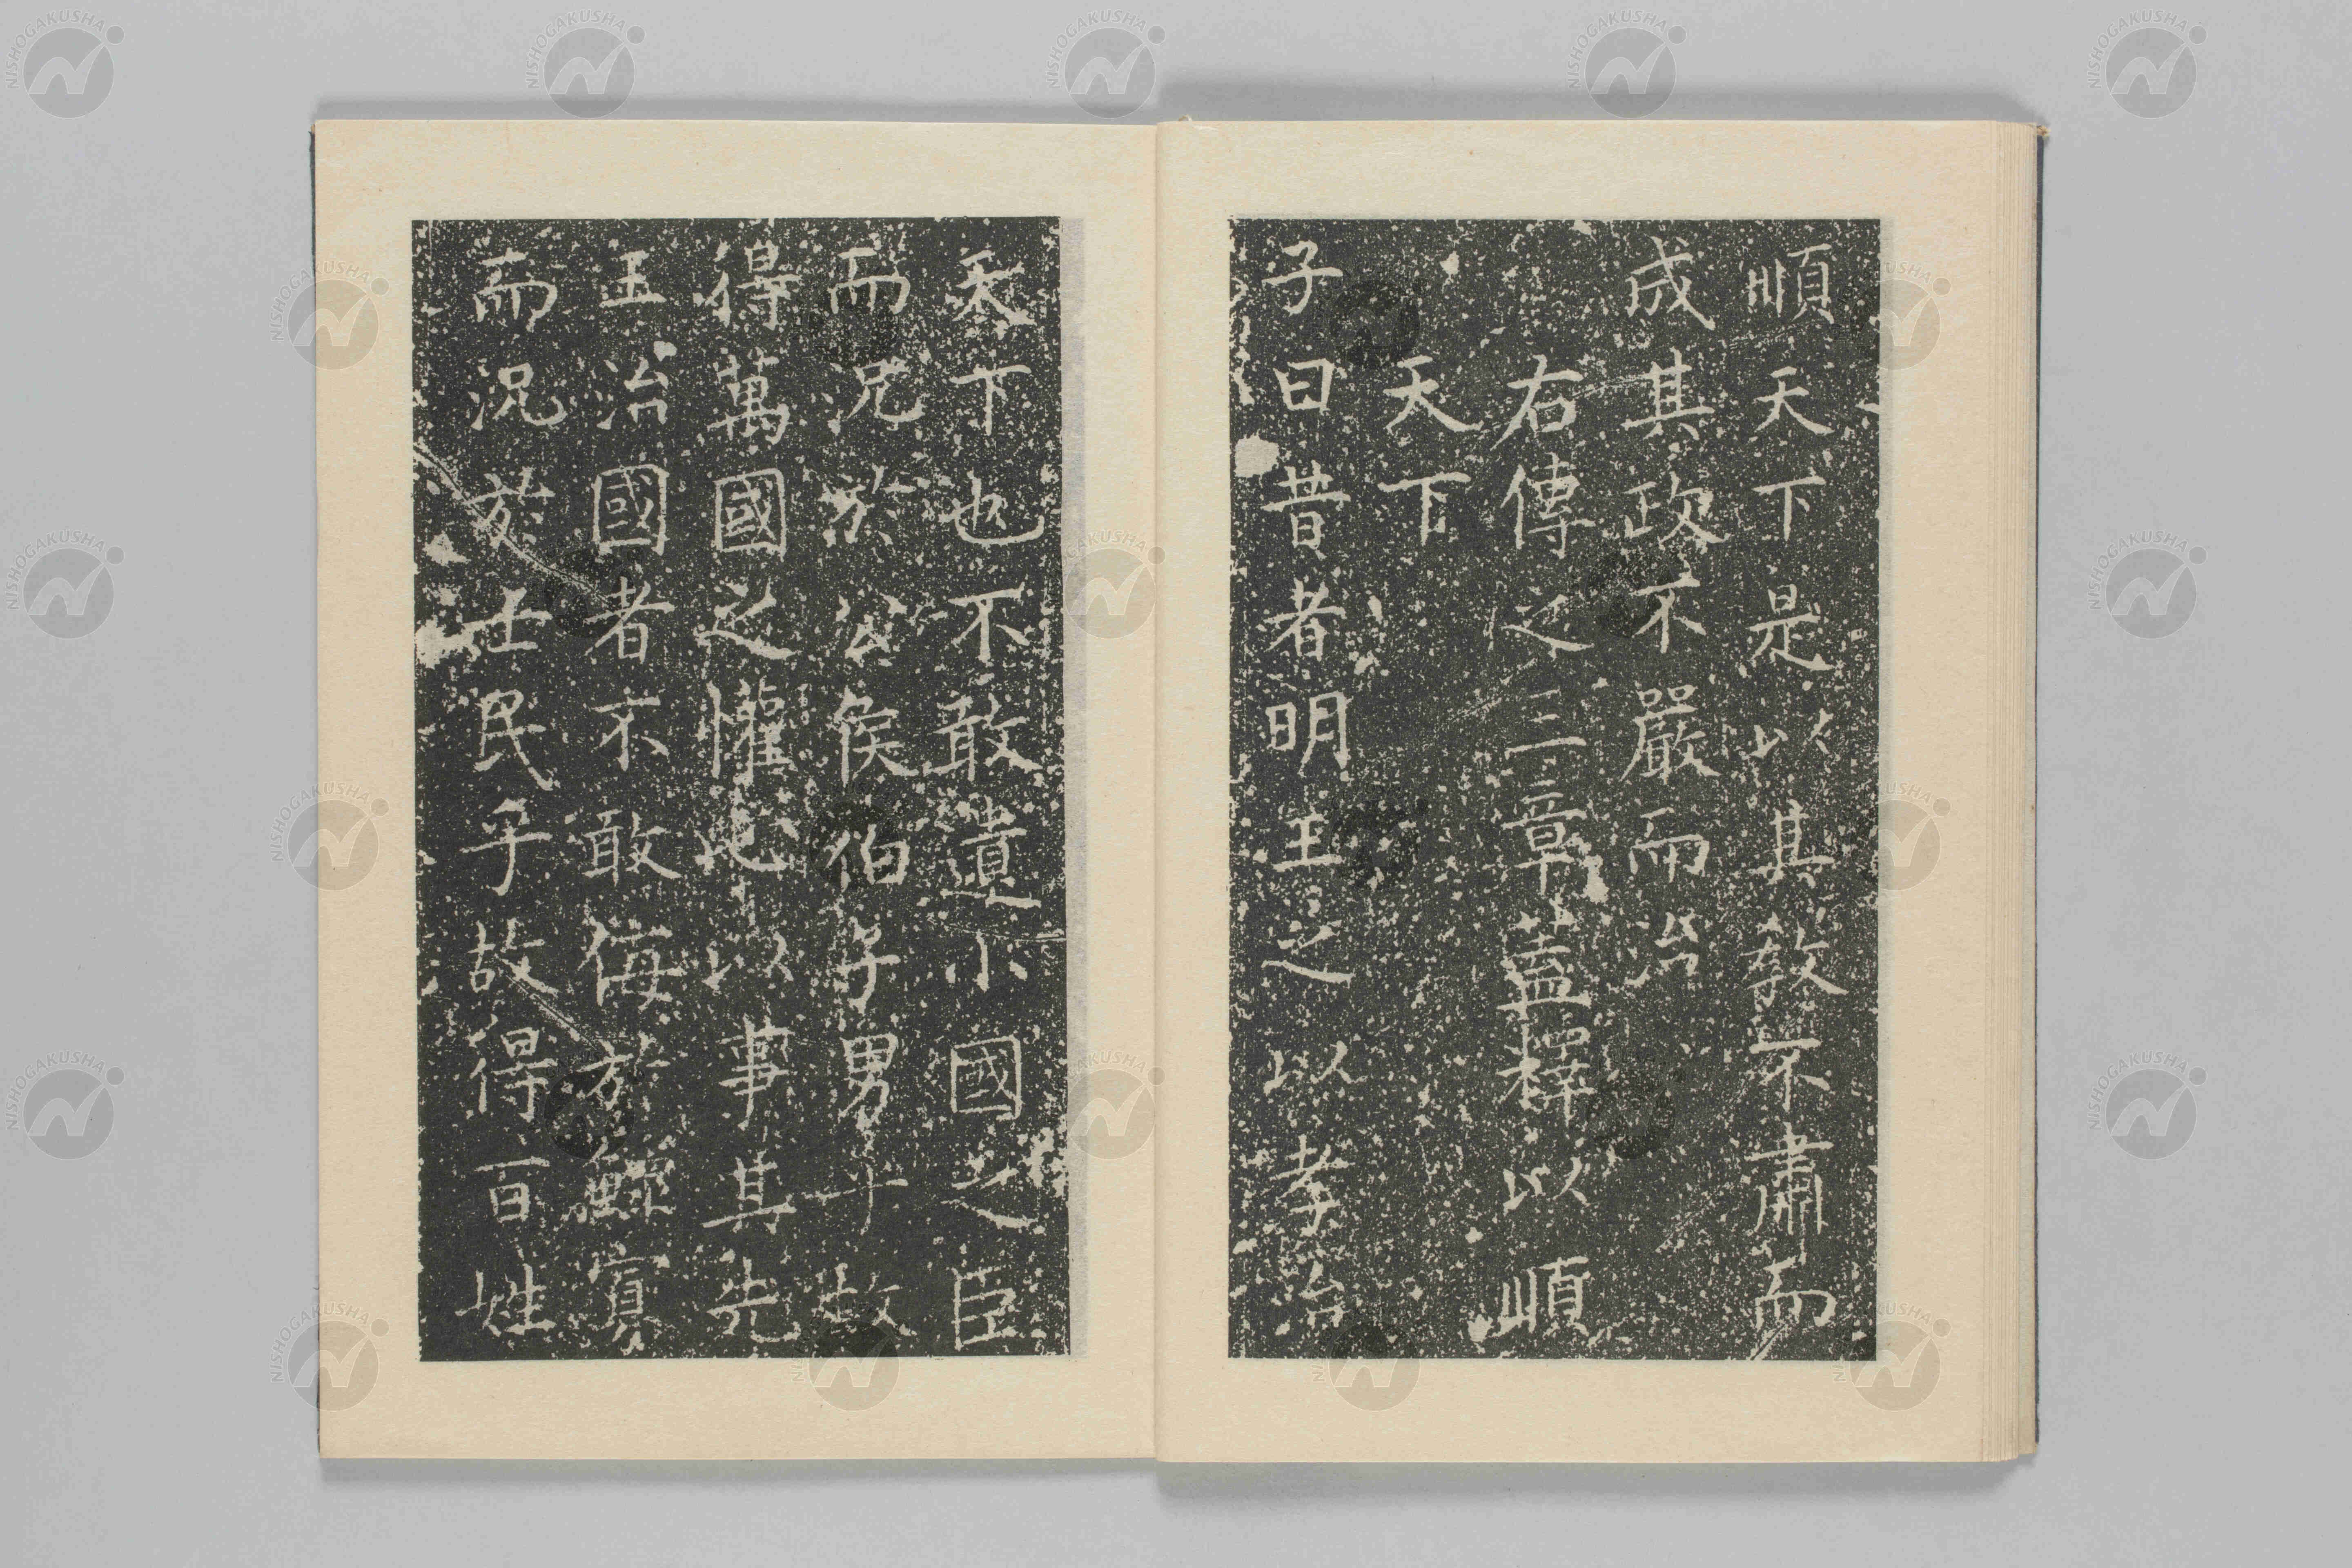 順天下是以其教不肅而
成其政不嚴而治
右傳之三章蓋釋以順
天下
子曰昔者明王之以孝治
天下也不敢遺小國之臣
而況於公侯伯子男乎故
得萬國之懽心以事其先
王治國者不敢侮於鰥寡
而況於士民乎故得百姓
NISHOGAKUSHA